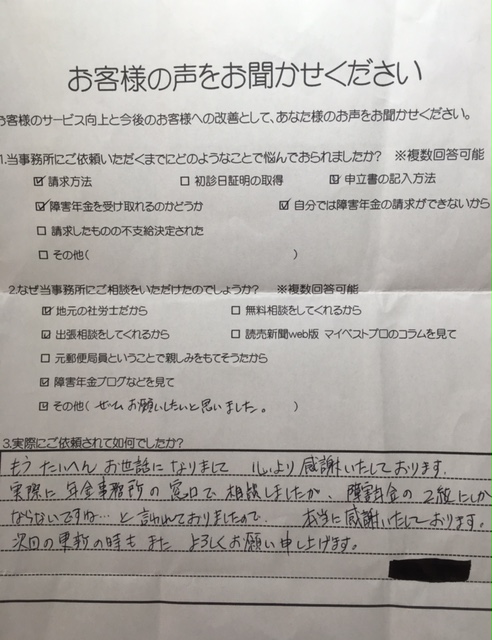 お客様の声をお聞かせください
お客様のサービス向上と今後のお客様への改善として、あなた様のお声をお聞かせください。
1.当事務所にご依頼いただくまでにどのようなことで悩んでおられましたか？ ※複数回答可能
☑ 請求方法 □ 初診日証明の取得 ☑ 申立書の記入方法
☑ 障害年金を受け取れるのかどうか ☑ 自分では障害年金の請求ができないから
□ 請求したものの不支給決定された
□ その他( )
2.なぜ当事務所にご相談をいただけたのでしょうか？ ※複数回答可能
☑ 地元の社労士だから □ 無料相談をしてくれるから
☑ 出張相談をしてくれるから □ 読売新聞web版 マイベストプロのコラムを見て
□ 元郵便局員ということで親しみをもてそうだから
☑ 障害年金ブログなどを見て
☑ その他( ぜひお願いしたいと思いました。 )
3.実際にご依頼されて如何でしたか？
もう たいへん お世話になりまして 心より感謝いたしております。
実際に 年金事務所の窓口で 相談しましたが、障害年金の2級にしか
ならないですね…と言われておりましたので、 本当に感謝いたしております。
次回の更新の時も また よろしくお願い申し上げます。